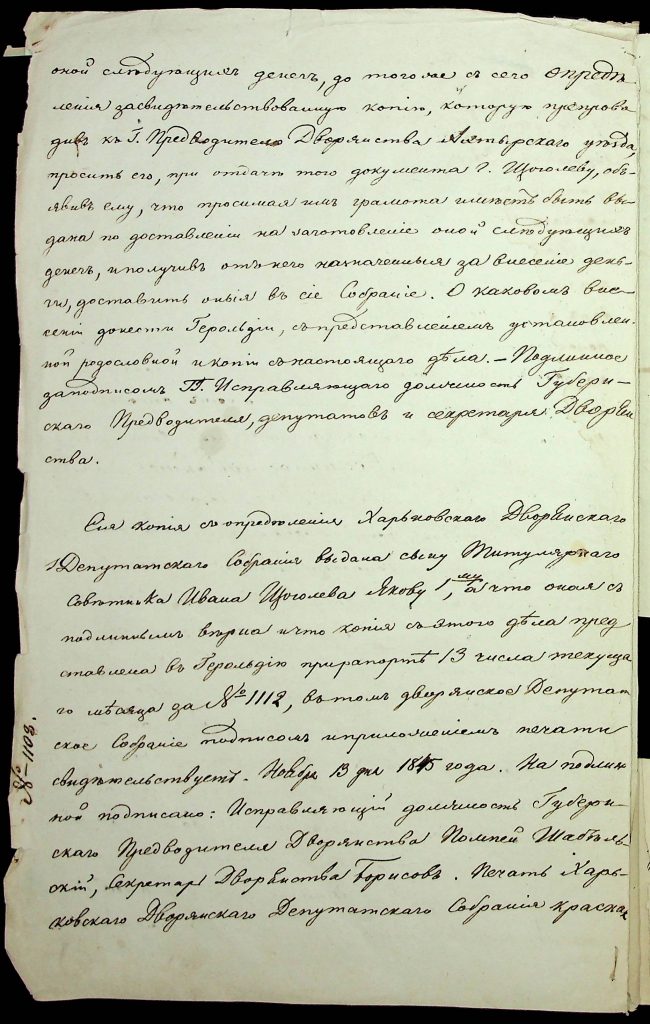 оной слѣдующихъ денегъ, до того же съ сего опредѣ
ленія засвидѣтельствованную копію, которую препрово
дивъ къ Г. Предводителю Дворянства Ахтырскаго уѣзда,
просить его, при отдачѣ того документа Г. Щоголеву, объ-
явивъ ему, что просимая имъ грамота имѣетъ быть вы-
дана по доставленіи на заготовленіе оной слѣдующихъ
денегъ, и получивъ отъ него назначенныя за внесеніе день-
ги, доставить оныя въ сіе Собраніе. О каковомъ вне-
сеніи донести Герольдіи, съ представленіемъ установлен-
ной родословной и копіи съ настоящаго дѣла. — Подлинное
за подписомъ Гг. Исправляющаго должность Губерн-
скаго Предводителя, депутатовъ и секретаря Дворян
ства.
Сія копія съ опредѣленія Харьковскаго Дворянскаго
Депутатскаго Собранія выдана сыну Титулярнаго
Совѣтника Ивана Щоголева Якову 1му, а что оная съ
подлиннымъ вѣрна и что копія съ этого дѣла пред
ставлена въ Герольдію при рапортѣ 13 числа текуща
го мѣсяца за № 1112, въ томъ дворянское Депутат
ское Собраніе подписомъ и приложеніемъ печати
свидѣтельствуетъ. Ноября 13 дня 1845 года. На подлин
ной подписано: Исправляющій должность Губерн-
скаго Предводителя Дворянства Помпей Шабель
скій, Секретарь Дворянства Борисовъ. Печать Харь-
ковскаго Дворянскаго Депутатскаго Собранія красная
№ 1103.